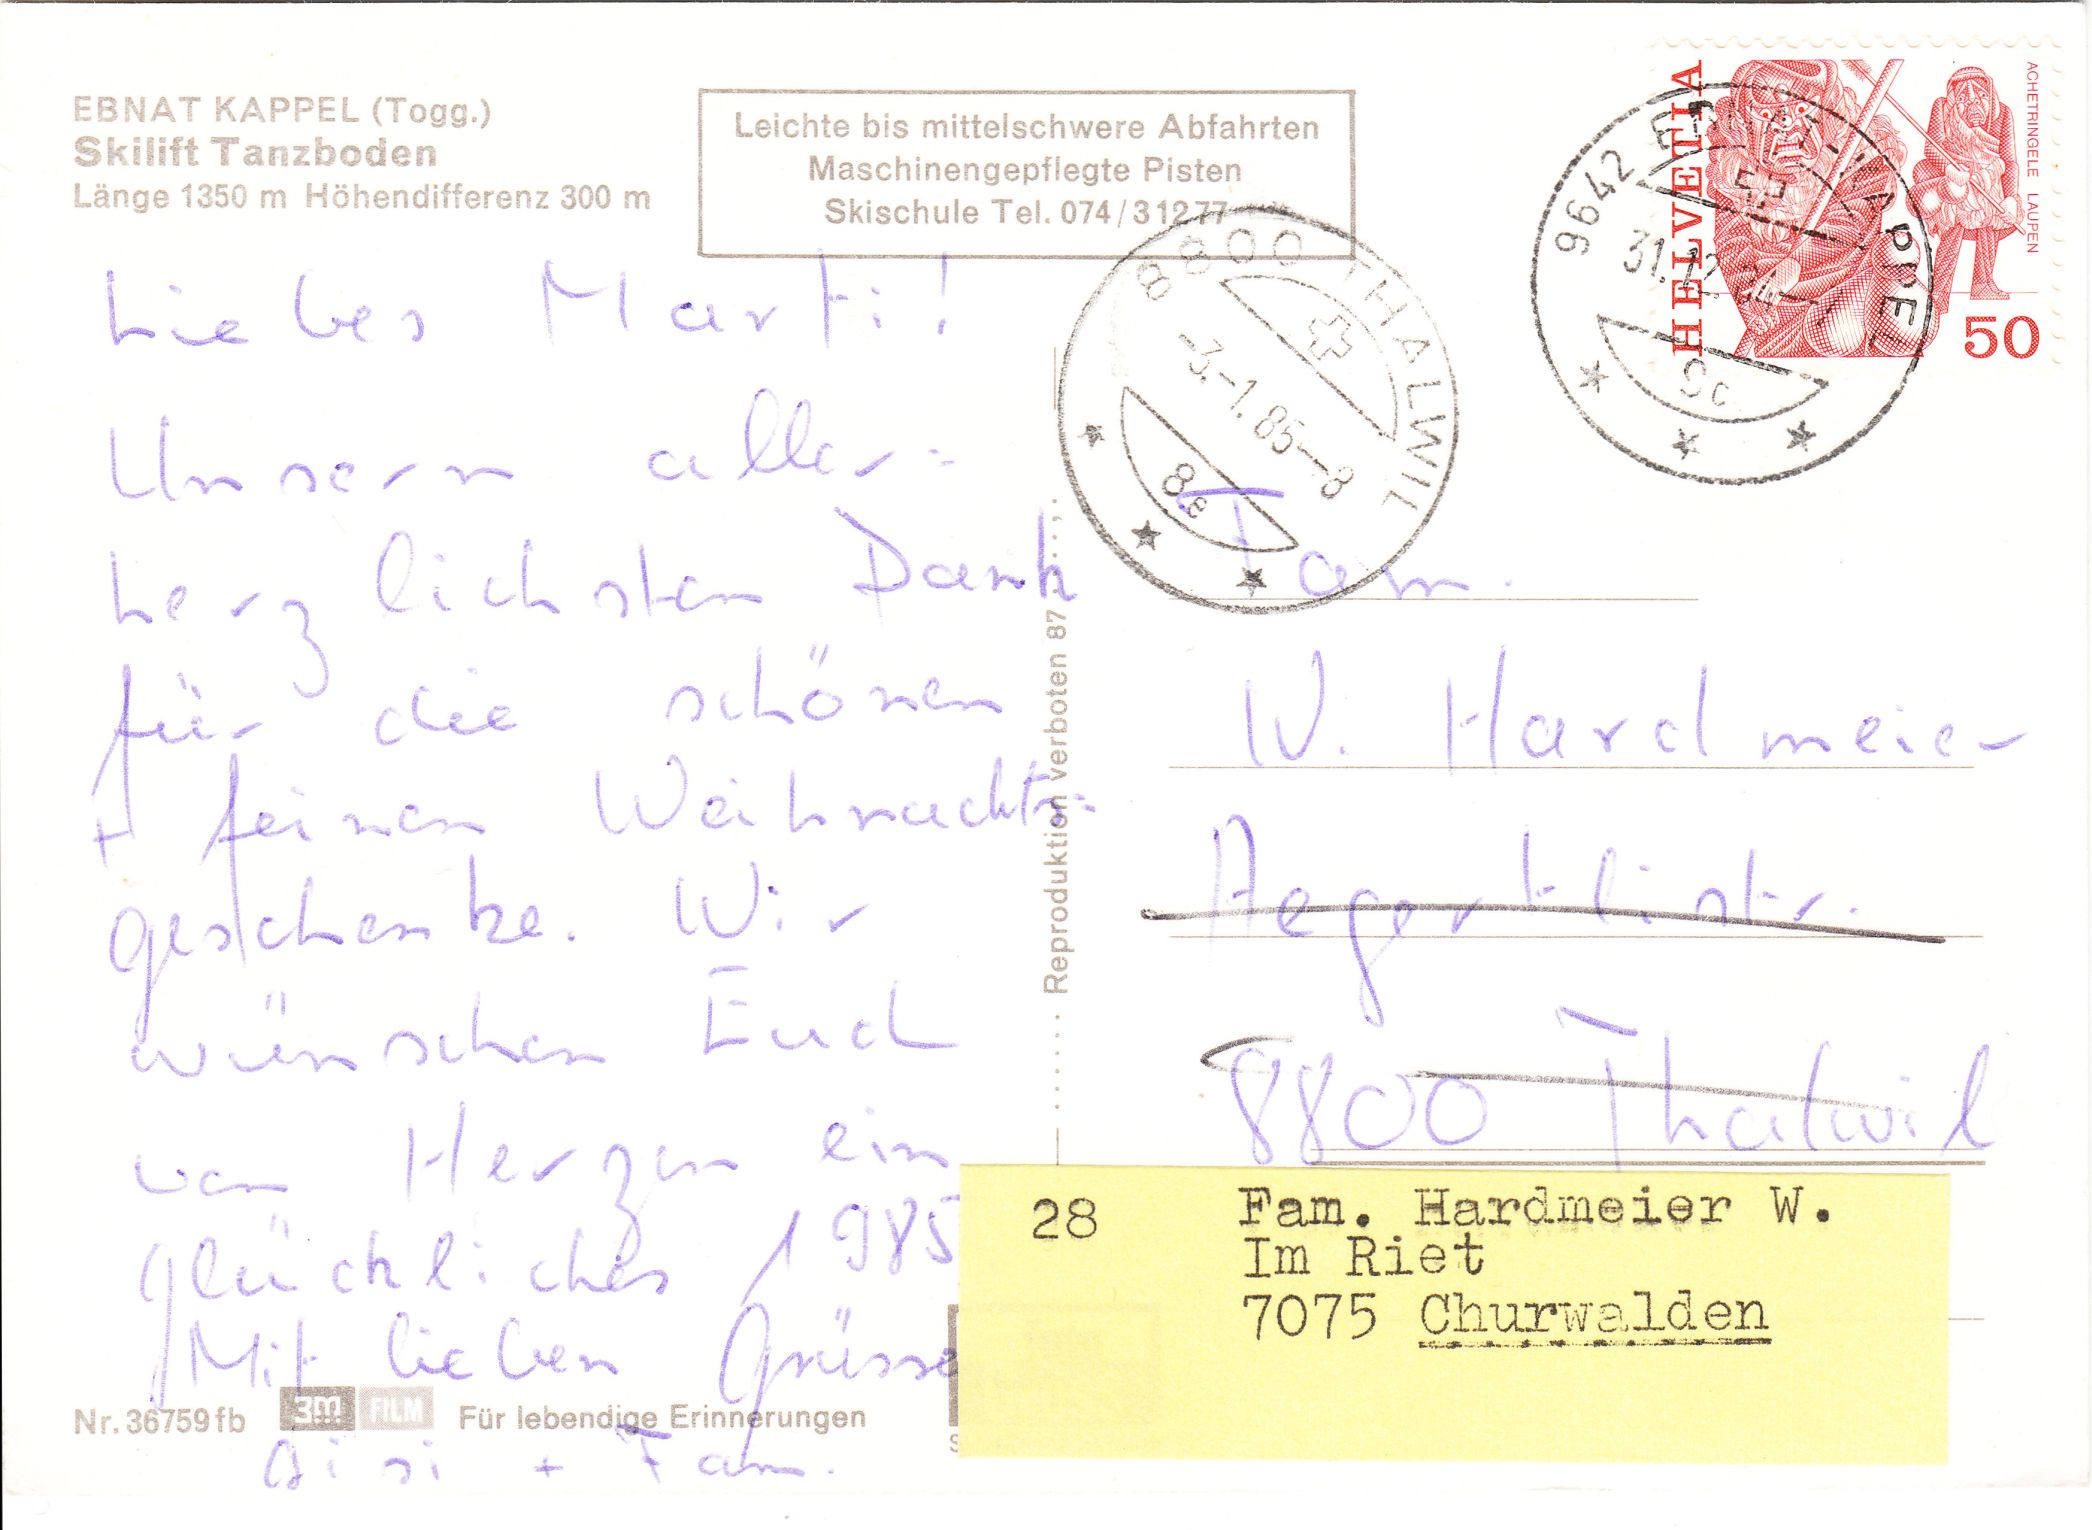 EBNAT KAPPEL (Togg.)
Skilift Tanzboden
Länge 1350 m Höhendifferenz 300 m
Leichte bis mittelschwere Abfahrten
Maschinengepflegte Pisten
Skischule Tel. 074/31277
HELVETIA
ACHETRINGELE LAUPEN
50
9642 EBNAT-KAPPEL
31.12.84-
9c
8800 THALWIL
-3.-1.85--8
8e
Liebes Marti!
Unsern aller=
herzlichsten Dank
für die schönen
+ feinen Weihnachts=
geschenke. Wir
wünschen Euch
von Herzen ein
glückliches 1985
Mit lieben Grüsse
Gisi + Fam.
Reproduktion verboten 87
Fam.
W. Hardmeier
Aegertlistr.
8800 Thalwil
28 Fam. Hardmeier W.
Im Riet
7075 Churwalden
Nr. 36759fb 3m FILM Für lebendige Erinnerungen